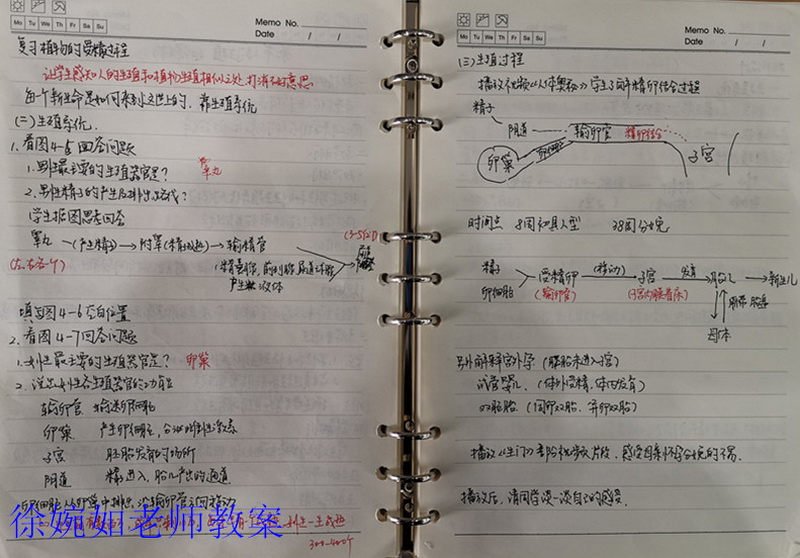 Memo No.
Mo Tu We Th Fr Sa Su
Date / /
复习植物的受精过程
让学生感知人的生殖和植物生殖相似之处,打消不好意思
每个新生命是如何来到这世上的,靠生殖系统
(二)生殖系统
1.看图4-5回答问题
1.男性最主要的生殖器官是? 睾丸
2.男性精子的产生及排出路径?
学生据图思考回答
睾丸→(产生精子)→附睾(精子成熟)→输精管
(左右各一个)
产生 液体
填写图4-6空白位置
2.看图4-7回答问题
1.女性最主要的生殖器官是? 卵巢
2.说出女性各生殖器官的功能
输卵管 输送卵细胞
卵巢 产生卵细胞,分泌雌性激素
子宫 胚胎发育的场所
阴道 精子进入,胎儿产出的通道
300-400个
徐婉如老师教案
Memo No.
Mo Tu We Th Fr Sa Su
Date / /
(三)生殖过程
播放视频《人体奥秘》学生了解精卵结合过程
精子
阴道 输卵管 精卵结合
卵巢 子宫
时间点 8周初具人型 38周分娩
精子
卵细胞 → 受精卵 (移动)→ 子宫 发育→ 胎儿 → 新生儿
(输卵管) (子宫内膜着床)
脐带 胎盘
母体
另外解释宫外孕(胚胎未进入子宫)
试管婴儿(体外受精,体内发育)
双胞胎(同卵双胎,异卵双胎)
播放《生门》部分视频片段,感受母亲怀孕分娩的不易.
播放后,请同学谈一谈自己的感受.